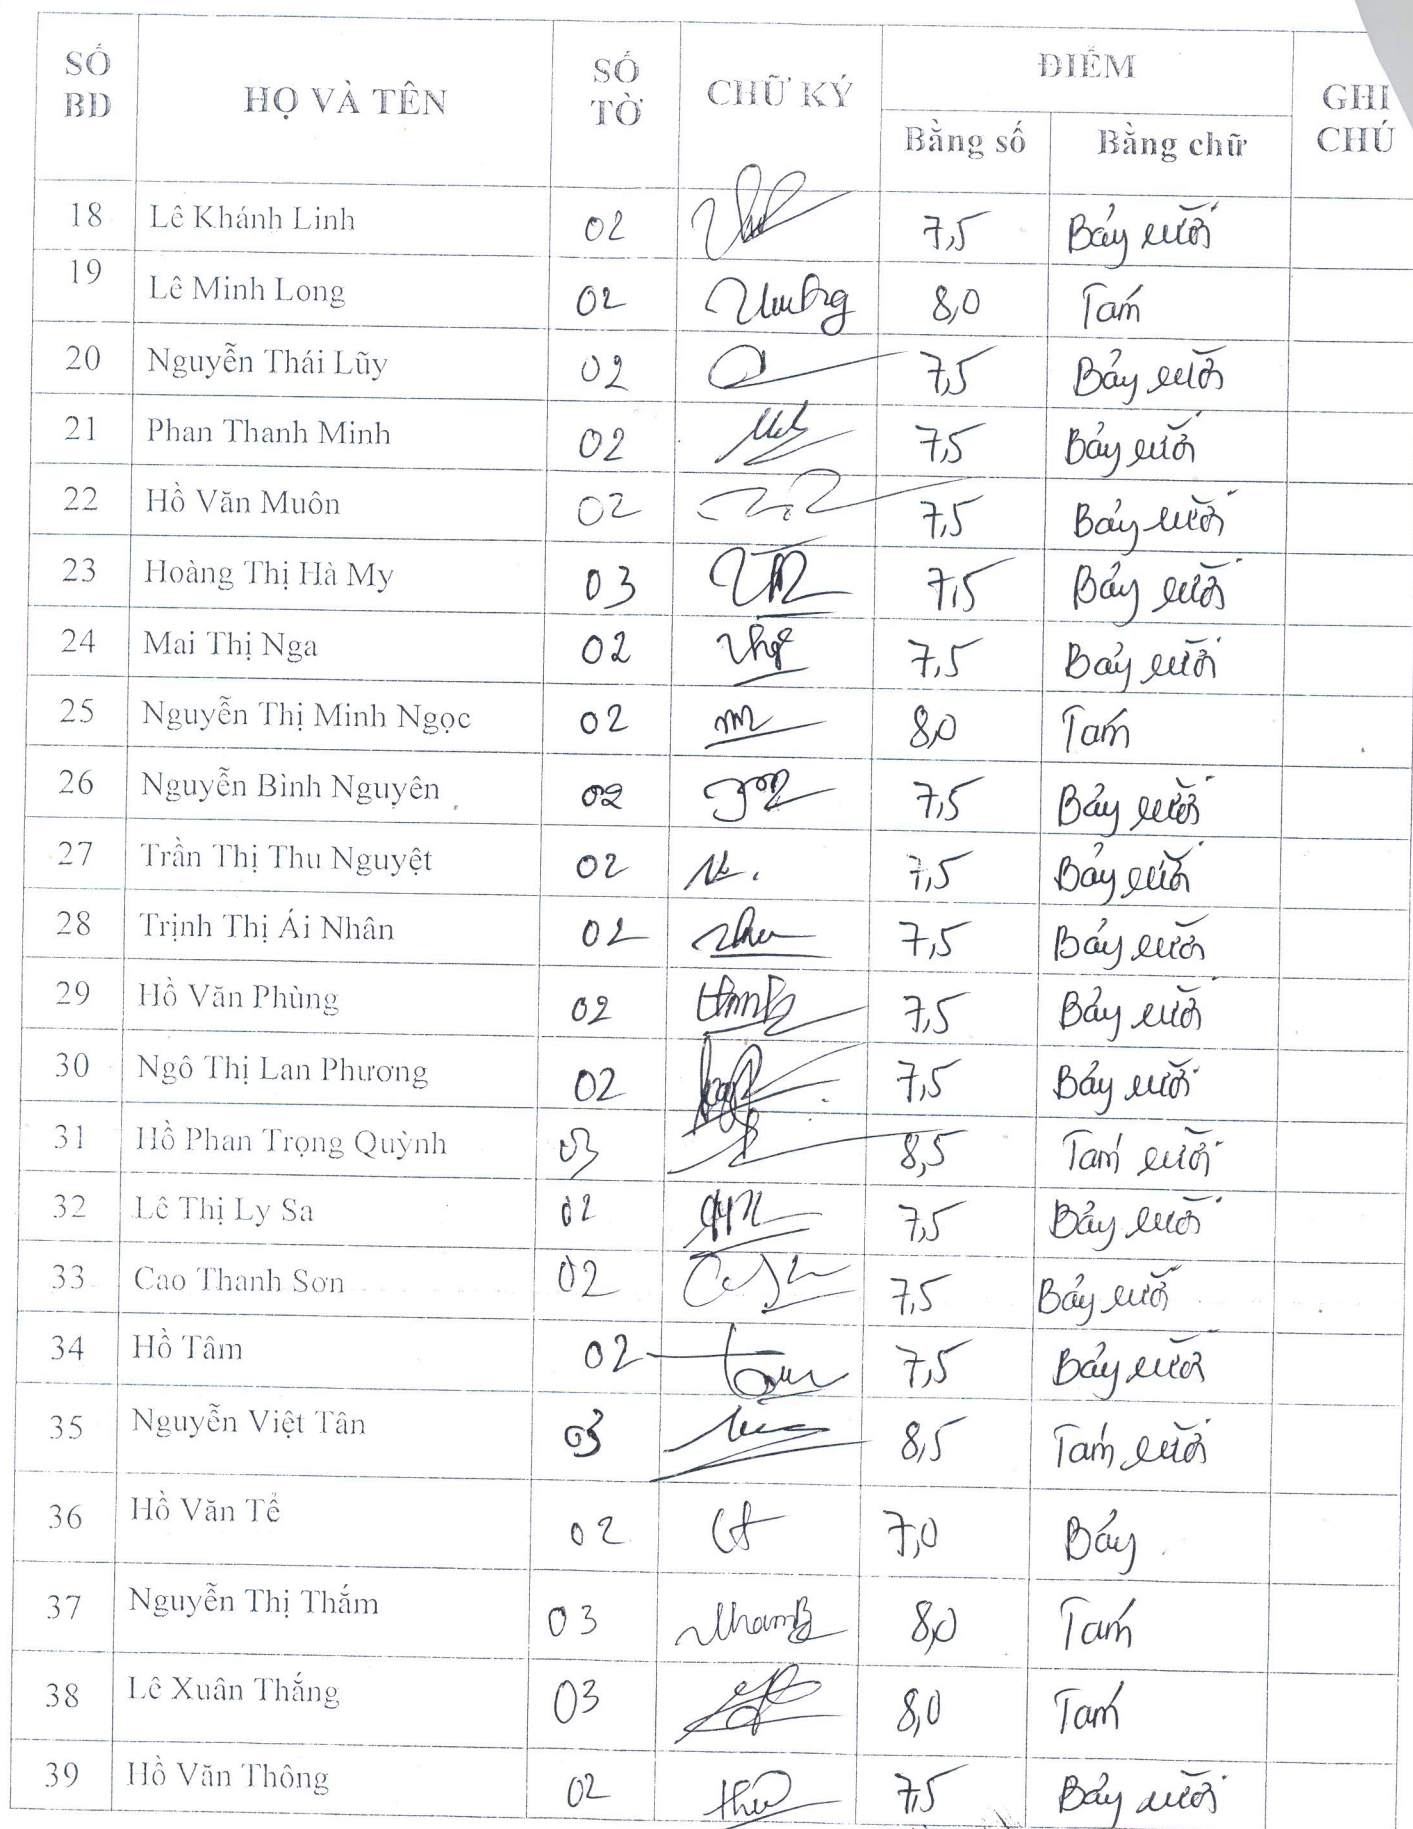 SỐ BD HỌ VÀ TÊN SỐ TỜ CHỮ KÝ ĐIỂM GHI CHÚ
Bằng số Bằng chữ
18 Lê Khánh Linh 02 7,5 Bảy rưỡi
19 Lê Minh Long 02 8,0 Tám
20 Nguyễn Thái Lũy 02 7,5 Bảy rưỡi
21 Phan Thanh Minh 02 7,5 Bảy rưỡi
22 Hồ Văn Muôn 02 7,5 Bảy rưỡi
23 Hoàng Thị Hà My 03 7,5 Bảy rưỡi
24 Mai Thị Nga 02 7,5 Bảy rưỡi
25 Nguyễn Thị Minh Ngọc 02 8,0 Tám
26 Nguyễn Bình Nguyên 02 7,5 Bảy rưỡi
27 Trần Thị Thu Nguyệt 02 7,5 Bảy rưỡi
28 Trịnh Thị Ái Nhân 02 7,5 Bảy rưỡi
29 Hồ Văn Phùng 02 7,5 Bảy rưỡi
30 Ngô Thị Lan Phương 02 7,5 Bảy rưỡi
31 Hồ Phan Trọng Quỳnh 03 8,5 Tám rưỡi
32 Lê Thị Ly Sa 02 7,5 Bảy rưỡi
33 Cao Thanh Sơn 02 7,5 Bảy rưỡi
34 Hồ Tâm 02 7,5 Bảy rưỡi
35 Nguyễn Việt Tân 03 8,5 Tám rưỡi
36 Hồ Văn Tể 02 7,0 Bảy
37 Nguyễn Thị Thắm 03 8,0 Tám
38 Lê Xuân Thắng 03 8,0 Tám
39 Hồ Văn Thông 02 7,5 Bảy rưỡi